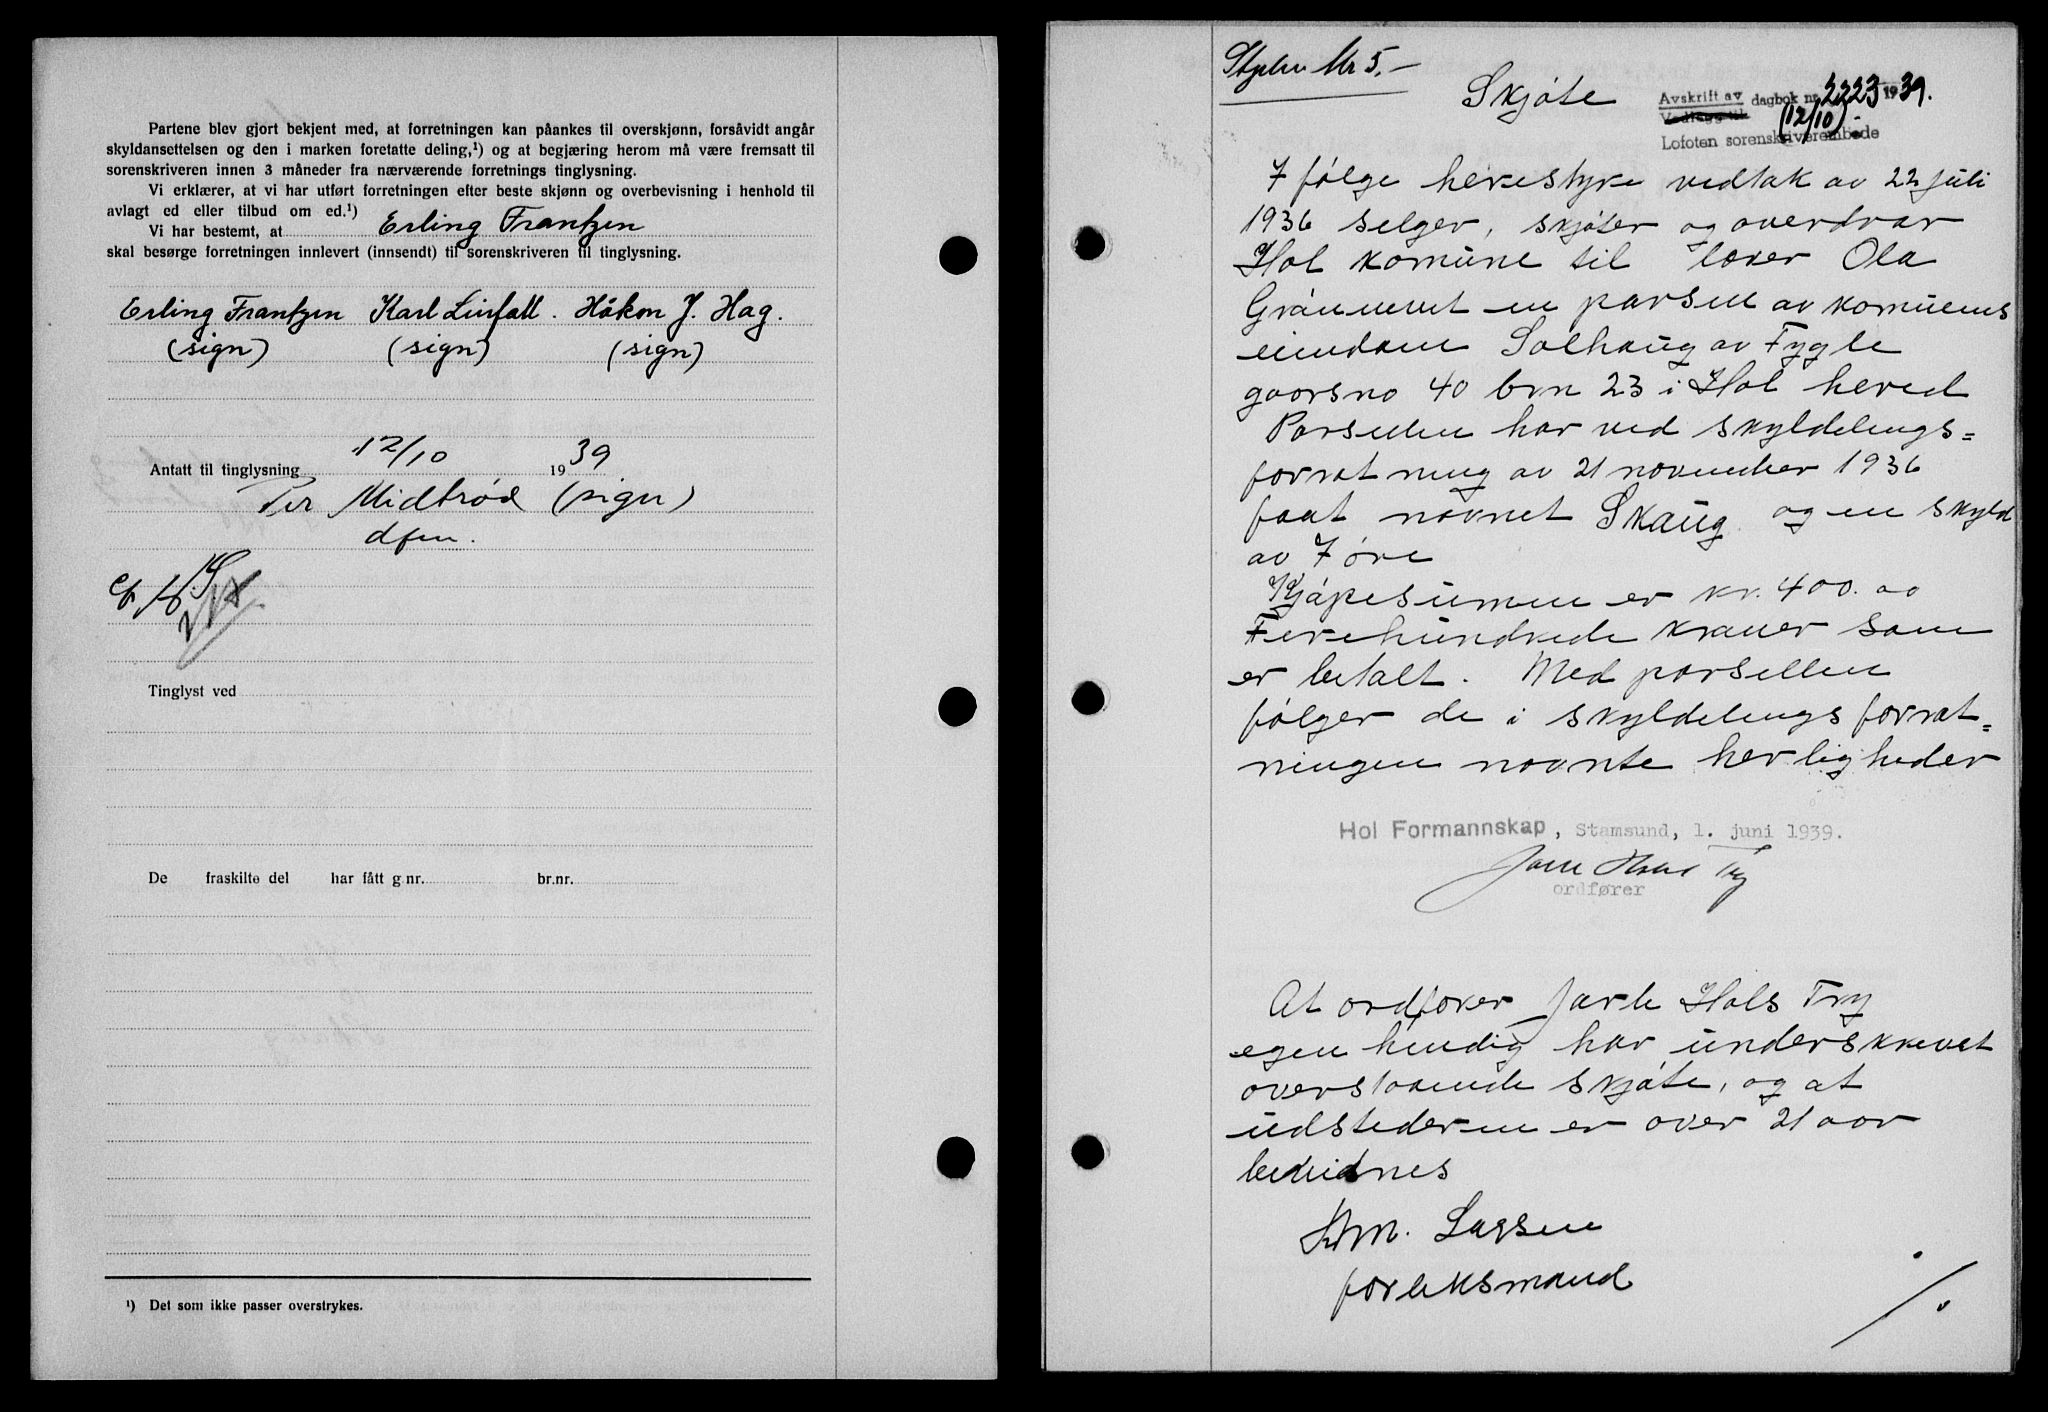 Partene blev gjort bekjent med, at forretningen kan påankes til overskjønn, forsåvidt angår
skyldansettelsen og den i marken foretatte deling,¹) og at begjæring herom må være fremsatt til
sorenskriveren innen 3 måneder fra nærværende forretnings tinglysning.
Vi erklærer, at vi har utført forretningen efter beste skjønn og overbevisning i henhold til
avlagt ed eller tilbud om ed.¹)
Vi har bestemt, at Erling Frantzen
skal besørge forretningen innlevert (innsendt) til sorenskriveren til tinglysning.
Erling Frantzen Karl Linfall. Håkon J. Hag.
(sign) (sign) (sign)
Antatt til tinglysning 12/10 1939
Per Midtrød (sign)
dfm.
Tinglyst ved
De fraskilte del har fått g.nr. br.nr.
¹) Det som ikke passer overstrykes.
Nr 5.-
Skjøte
Avskrift av dagbok nr. 2223 1939.
Vedlegg til (12/10).
Lofoten sorenskriverembede
I følge herestyre vedtak av 22 juli
1936 selger, skjøter og overdrar
Hol komune til lærer Ola
en parsell av komunens
eiendom Solhaug av Fygle
gaorsno 40 brn 23 i Hol hered
Parsellen har ved skyldelings=
forretning av 21 november 1936
faat navnet Skaug og en skyld
av 7 øre
Kjøpesumen er kr. 400. 
Firehundrede kroner som
er betalt. Med parsellen
følger de i skyldelingsforret=
ningen nevnte herligheder
Hol Formannskap, Stamsund, 1. juni 1939.
Jarle Hols Try
ordfører
At ordfører Jarle Hols Try
egenhendig har underskrevet
overstaaende skjøte, og at
udstederen er over 21 aar
bevidnes
Larsen
forliksmand
./.